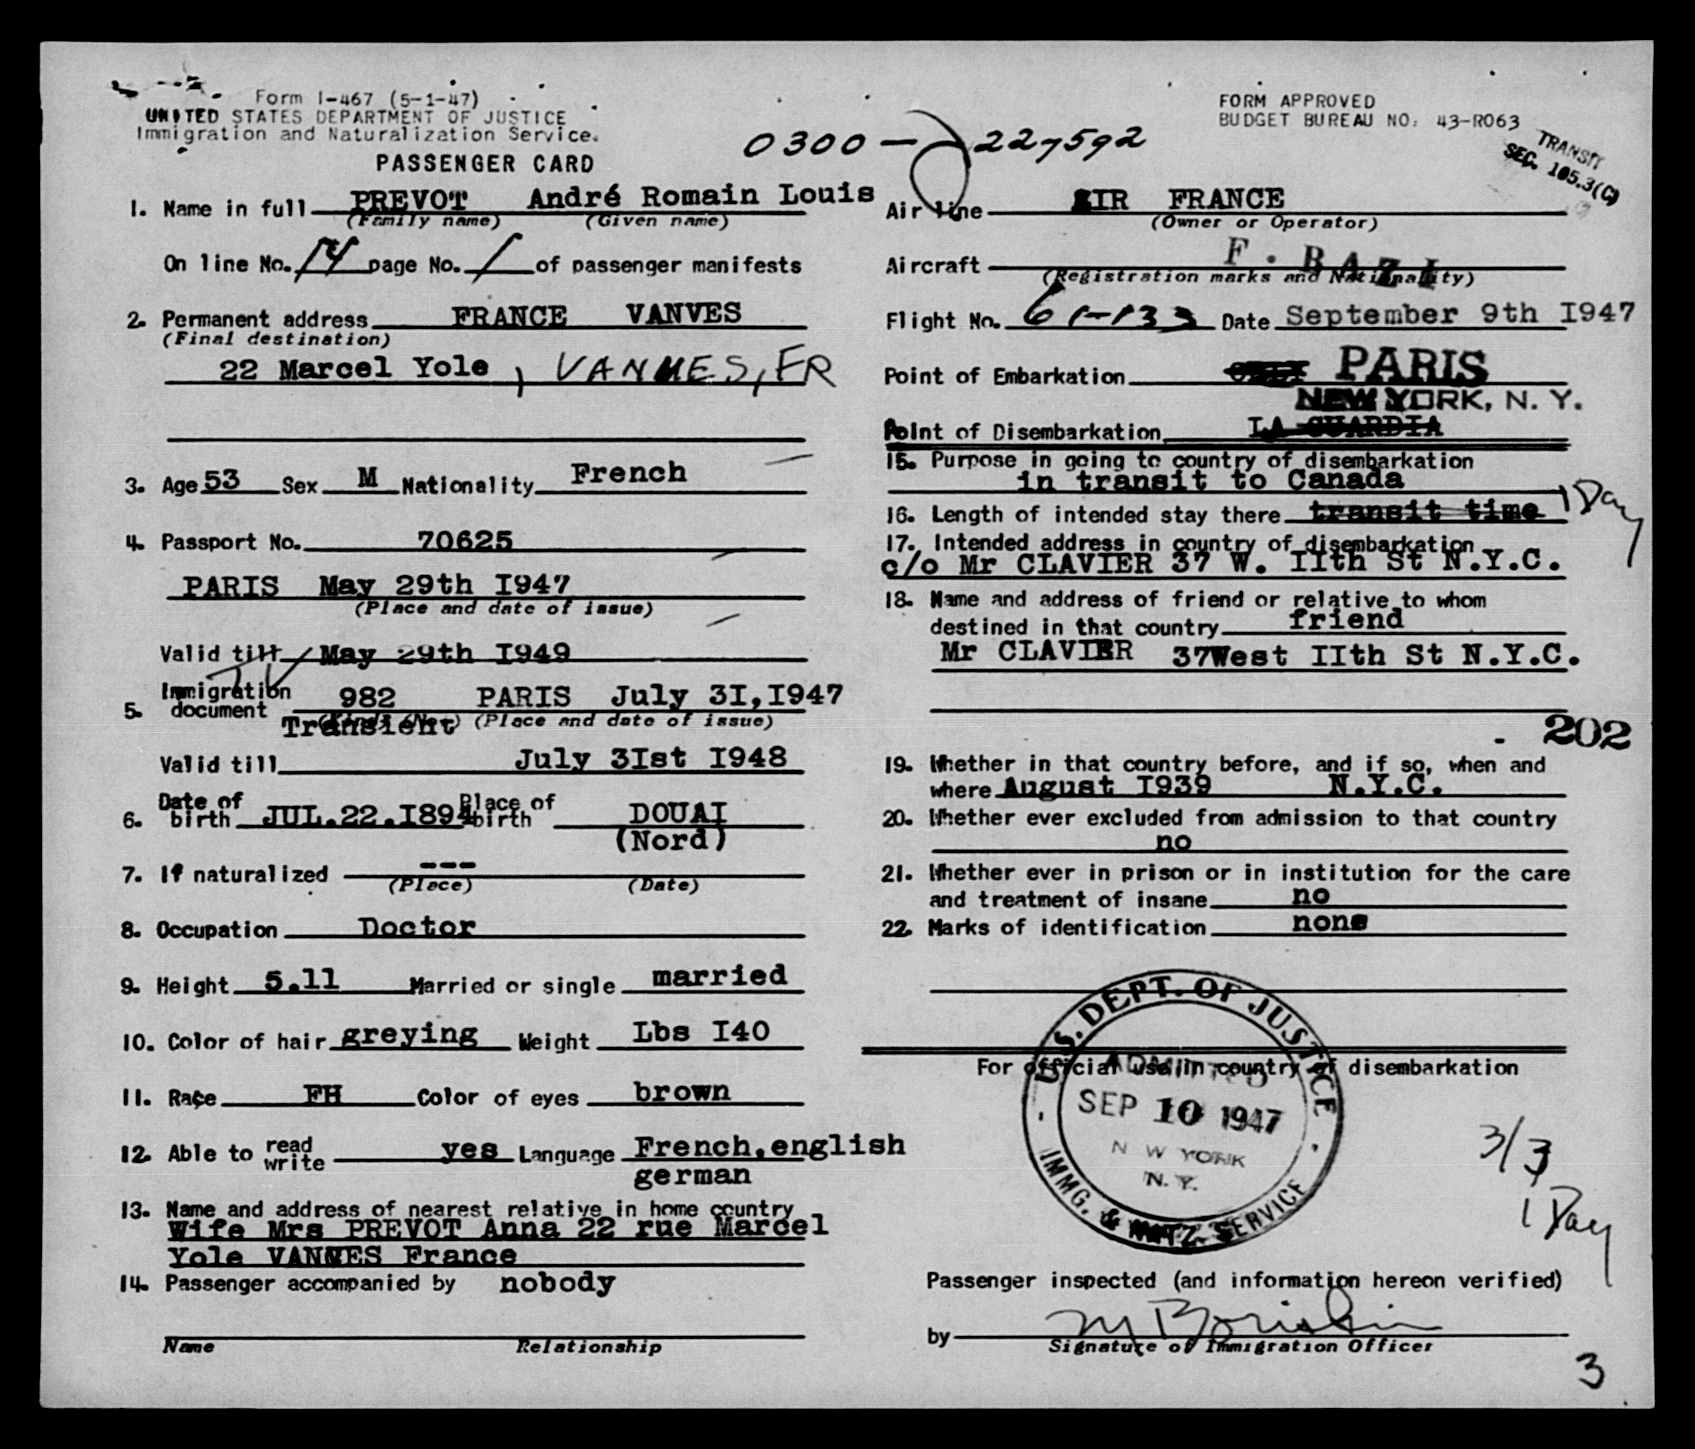 Form I-467 (5-1-47)
UNITED STATES DEPARTMENT OF JUSTICE
Immigration and Naturalization Service.
PASSENGER CARD
0300-227592
FORM APPROVED
BUDGET BUREAU NO. 43-R063
TRANSIT
SEC. 105.3(C)
1. Name in full PREVOT André Romain Louis
(Family name) (Given name)
On line No. 14 page No. 1 of passenger manifests
2. Permanent address FRANCE VANVES
(Final destination)
22 Marcel Yole , VANVES, FR
3. Age 53 Sex M Nationality French
4. Passport No. 70625
PARIS May 29th I947
(Place and date of issue)
Valid till May 29th I949
5. Immigration document 982 PARIS July 3I,I947
Transient (Kind) (No.) (Place and date of issue)
Valid till July 3Ist I948
6. Date of birth JUL.22.I894 Place of birth DOUAI
(Nord)
7. If naturalized ---
(Place) (Date)
8. Occupation Doctor
9. Height 5.11 Married or single married
10. Color of hair greying Weight Lbs I40
11. Race FH Color of eyes brown
12. Able to read write yes Language French,english
german
13. Name and address of nearest relative in home country
Wife Mrs PREVOT Anna 22 rue Marcel
Yole VANVES France
14. Passenger accompanied by nobody
Name Relationship
Air line AIR FRANCE
(Owner or Operator)
Aircraft F.BAZI
(Registration marks and Nationality)
Flight No. 61-133 Date September 9th I947
Point of Embarkation PARIS
NEW YORK, N. Y.
Point of Disembarkation LA GUARDIA
15. Purpose in going to country of disembarkation
in transit to Canada
16. Length of intended stay there transit time 1 Day
17. Intended address in country of disembarkation
c/o Mr CLAVIER 37 W. IIth St N.Y.C.
18. Name and address of friend or relative to whom
destined in that country friend
Mr CLAVIER 37West IIth St N.Y.C.
202
19. Whether in that country before, and if so, when and
where August I939 N.Y.C.
20. Whether ever excluded from admission to that country
no
21. Whether ever in prison or in institution for the care
and treatment of insane no
22. Marks of identification none
For official use in country of disembarkation
U.S. DEPT. OF JUSTICE
ADMITTED
SEP 10 1947
NEW YORK
N. Y.
IMMG. & NATZ. SERVICE
3/3
1 Day
Passenger inspected (and information hereon verified)
by
Signature of Immigration Officer
3